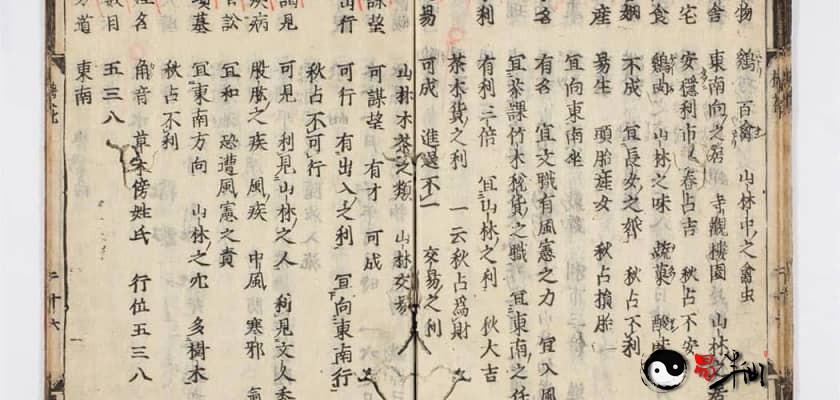 物 鷄 百禽 山林中之禽虫
舍 東南向之居 寺觀樓園 山林之居
宅 安穩利市 春占吉 秋占不安
食 鷄肉 山林之味 蔬菓 酸味
姻 不成 宜長女之婚 秋占不利
産 易生 頭胎産女 秋占損胎
宜向東南坐
名 有名 宜文職有風憲之力 宜入風
宜茶課竹木稅貨之職 宜東南之任
利 有利三倍 宜山林之利 秋大吉
茶木貨之利 一云秋占爲財
易 可成 進退不一 交易之利
山林木茶之類 山林交易
謀望 可謀望 有才 可成
出行 可行 有出入之利 宜向東南行
秋占不可行
謁見 可見 利見山林之人 利見文人秀
疾病 股肱之疾 風疾 中風 寒邪 氣
官訟 宜和 恐遭風憲之責
墳墓 宜東南方向 山林之穴 多樹木
秋占不利
姓名 角音 草木傍姓氏 行位五三八
數目 五三八
方道 東南
二十六